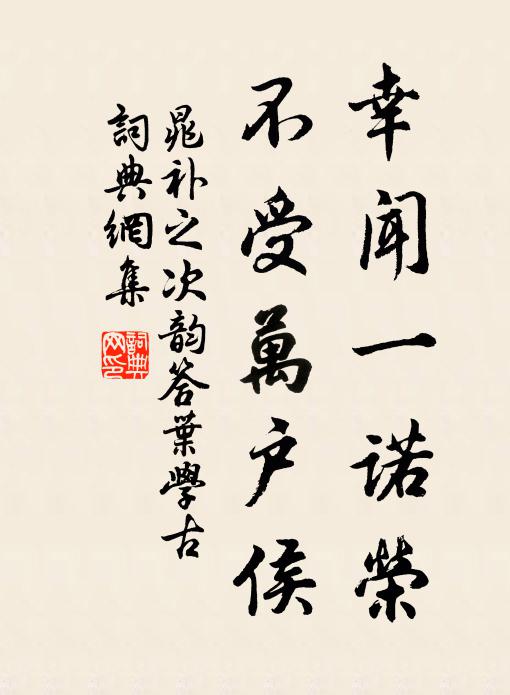 幸聞一諾榮
不受萬户侯
晁补之次韵答葉學古
詞典網集
詞典网印